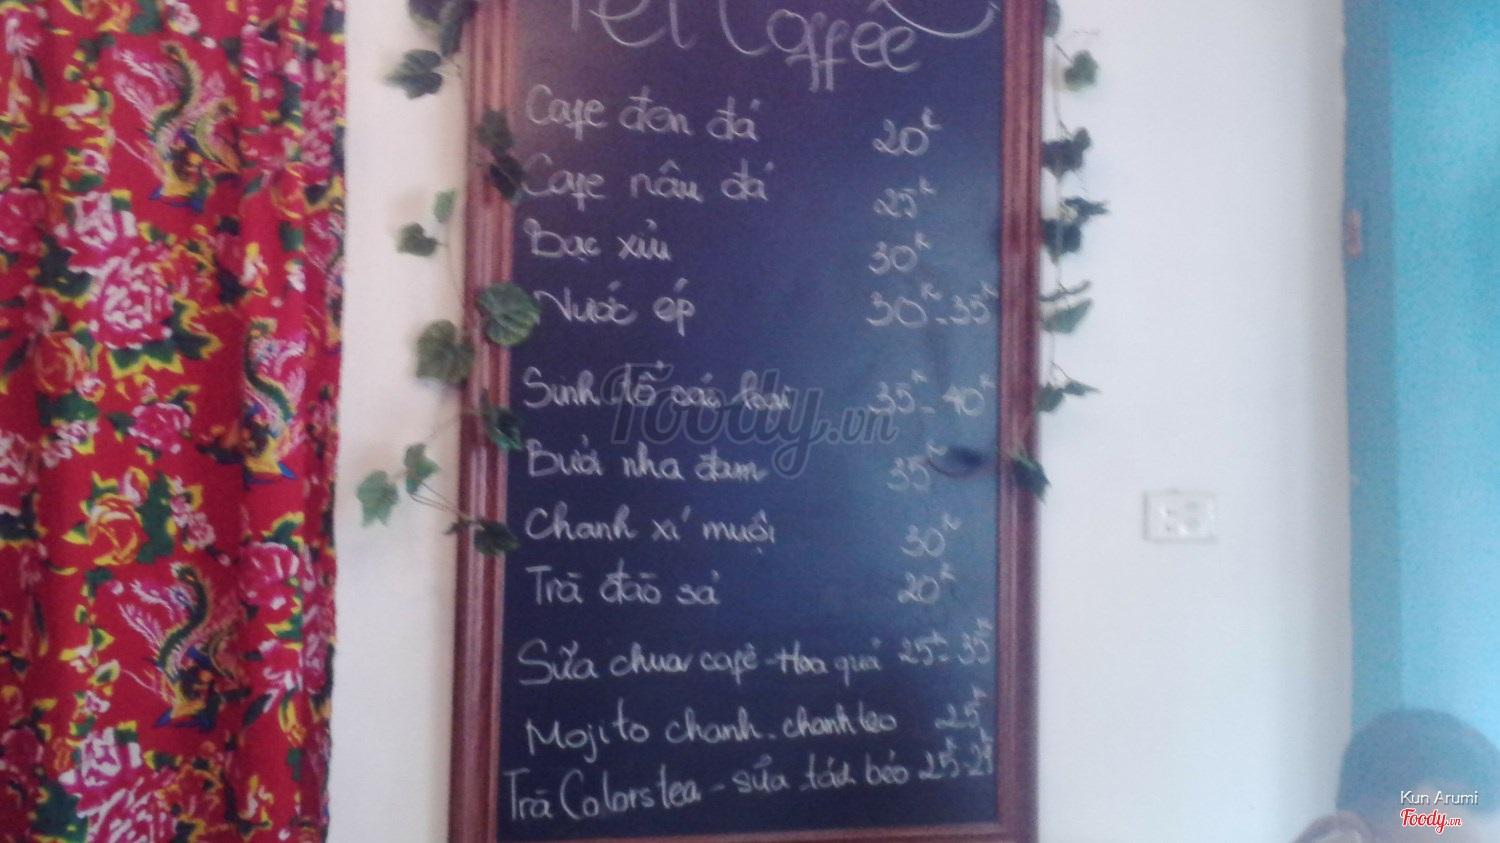 Tết Coffee
Cafe đen đá 20k
Cafe nâu đá 25k
Bạc xỉu 30k
Nước ép 30k - 35k
Sinh tố các loại 35k - 40k
Bưởi nha đam 35k
Chanh xí muội 30k
Trà đào sả 20k
Sữa chua cafê - Hoa quả 25k - 35k
Mojito chanh - chanh leo 25k
Trà Colorstea - sữa tách béo 25k-29k
Foody.vn
Kun Arumi
Foody.vn